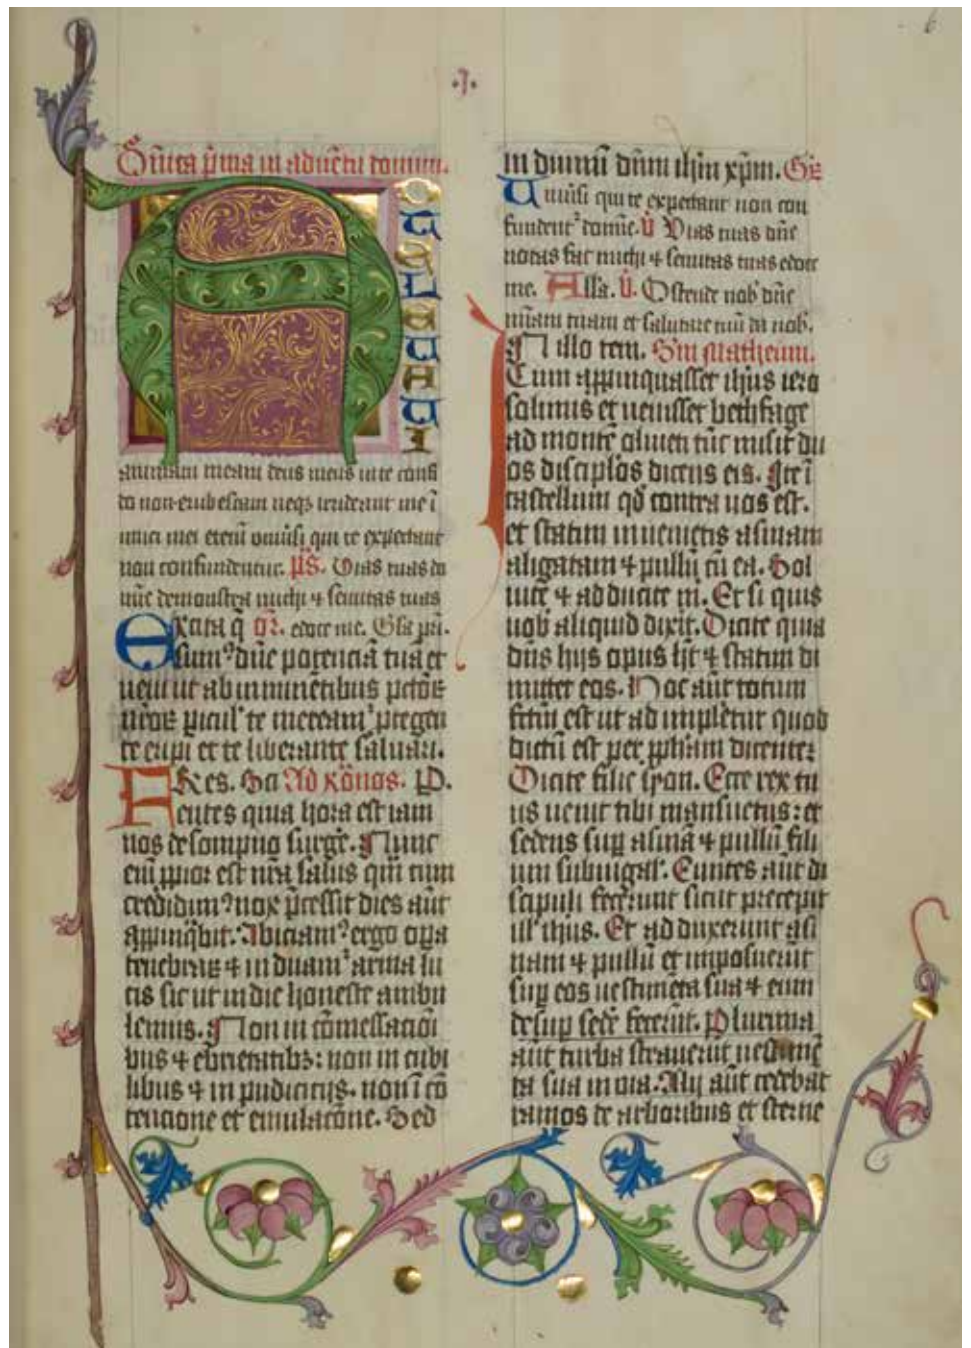 ·I·
6
Dn̄ica p̄ma in aduētu domini.
AD TE LEVAVI
animam meam deus meus in te confi
do non erubescam neq₃ irrideant me ī
imici mei etenī vniūsi qui te expectant
non confundentur. p̄s. Vias tuas do
mīe demonstra michi ⁊ semitas tuas
Excita q̄ or̄. edoce me. Gl̓a pr̄i.
sum⁹ dūe potenciā tuā et
veni ut ab inminētibus pctōꝝ
nr̄oꝝ picul' te mereamᷣ protegen
te eripi et te liberante saluari.
FRes. Sci Ad Rōnos. P.
cientes quia hora est iam
nos de sompno surgē̓. Nunc
eni ꝓpior est nr̄a salus qm̄ cum
credidim⁹ nox p̄cessit dies aūt
appinq̄bit. Abiciam⁹ ergo oꝑa
tenebraꝝ ⁊ induamᷣ arma lu
cis sic ut in die honeste ambu
lemus. Non in cōmessacioī
bus ⁊ ebrietatib₃: non in cubi
libus ⁊ in pudicicijs. non ī cō
tencione et emulacōne. Sed
in dm̄m dn̄m ihm̄ xp̄m. Gꝛ̄
Vniūsi qui te expectant non con
fundentᷣ domīe. v̄ Vias tuas dn̄e
notas fac michi ⁊ semitas tuas edoce
me. Alla. v̄. Ostende nob̓ dn̄e
mīam tuam et salutare tuū da nob̓.
IN illo tem. Sm̄ Matheum.
Cum appinquasset ihus iero
solimis et uenisset bethfage
ad montē oliueti tūc misit du
os discip̄los dicens eis. Ite ī
castellum qd̓ contra uos est.
et statim inuenietis asinam
aligatam ⁊ pullū cū ea. Sol
uite ⁊ adducite m̄. Et si quis
uob̓ aliquid dixit. Dicite quia
dn̄s hijs opus h̄t ⁊ statim di
mittet eos. Hoc aūt totum
fc̄tū est ut ad impletur quod
dictū est per ꝓph̄am dicentē
Dicite filie syon. Ecce rex tu
us uenit tibi mansuetus: et
sedens sup asinā ⁊ pullū fili
um subiugal'. Euntes aūt di
scipuli fecerunt sicut precepit
ill' ihus. Et adduxerunt asi
nam ⁊ pullū et imposuerūt
sup eos uestimēta sua ⁊ eum
desup sedē̓ fecerūt. Plurima
aūt turba strauerūt uestimē
ta sua in uia. Alij aūt cedebāt
ramos de arboribus et sterne